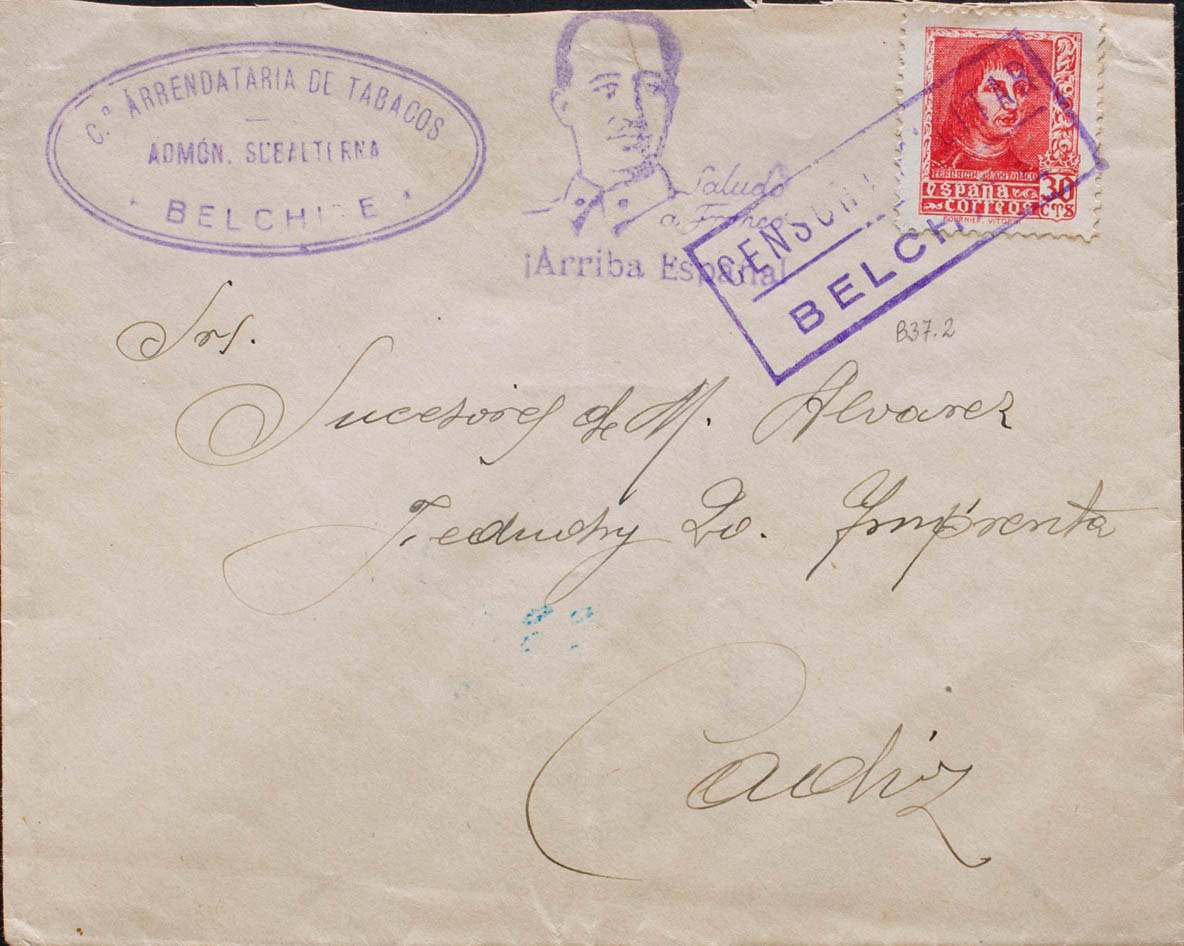 Cª ARRENDATARIA DE TABACOS
ADMÓN. SUBALTERNA
BELCHITE
Saludo
a Franco
¡Arriba España!
FERNANDO EL CATOLICO
españa
correos
30
CTS
FOURNIER. VITORIA
CENSURA MILITAR
BELCHITE
B37.2
Srs.
Sucesores de M. Alvarez
Imprenta
Cadiz